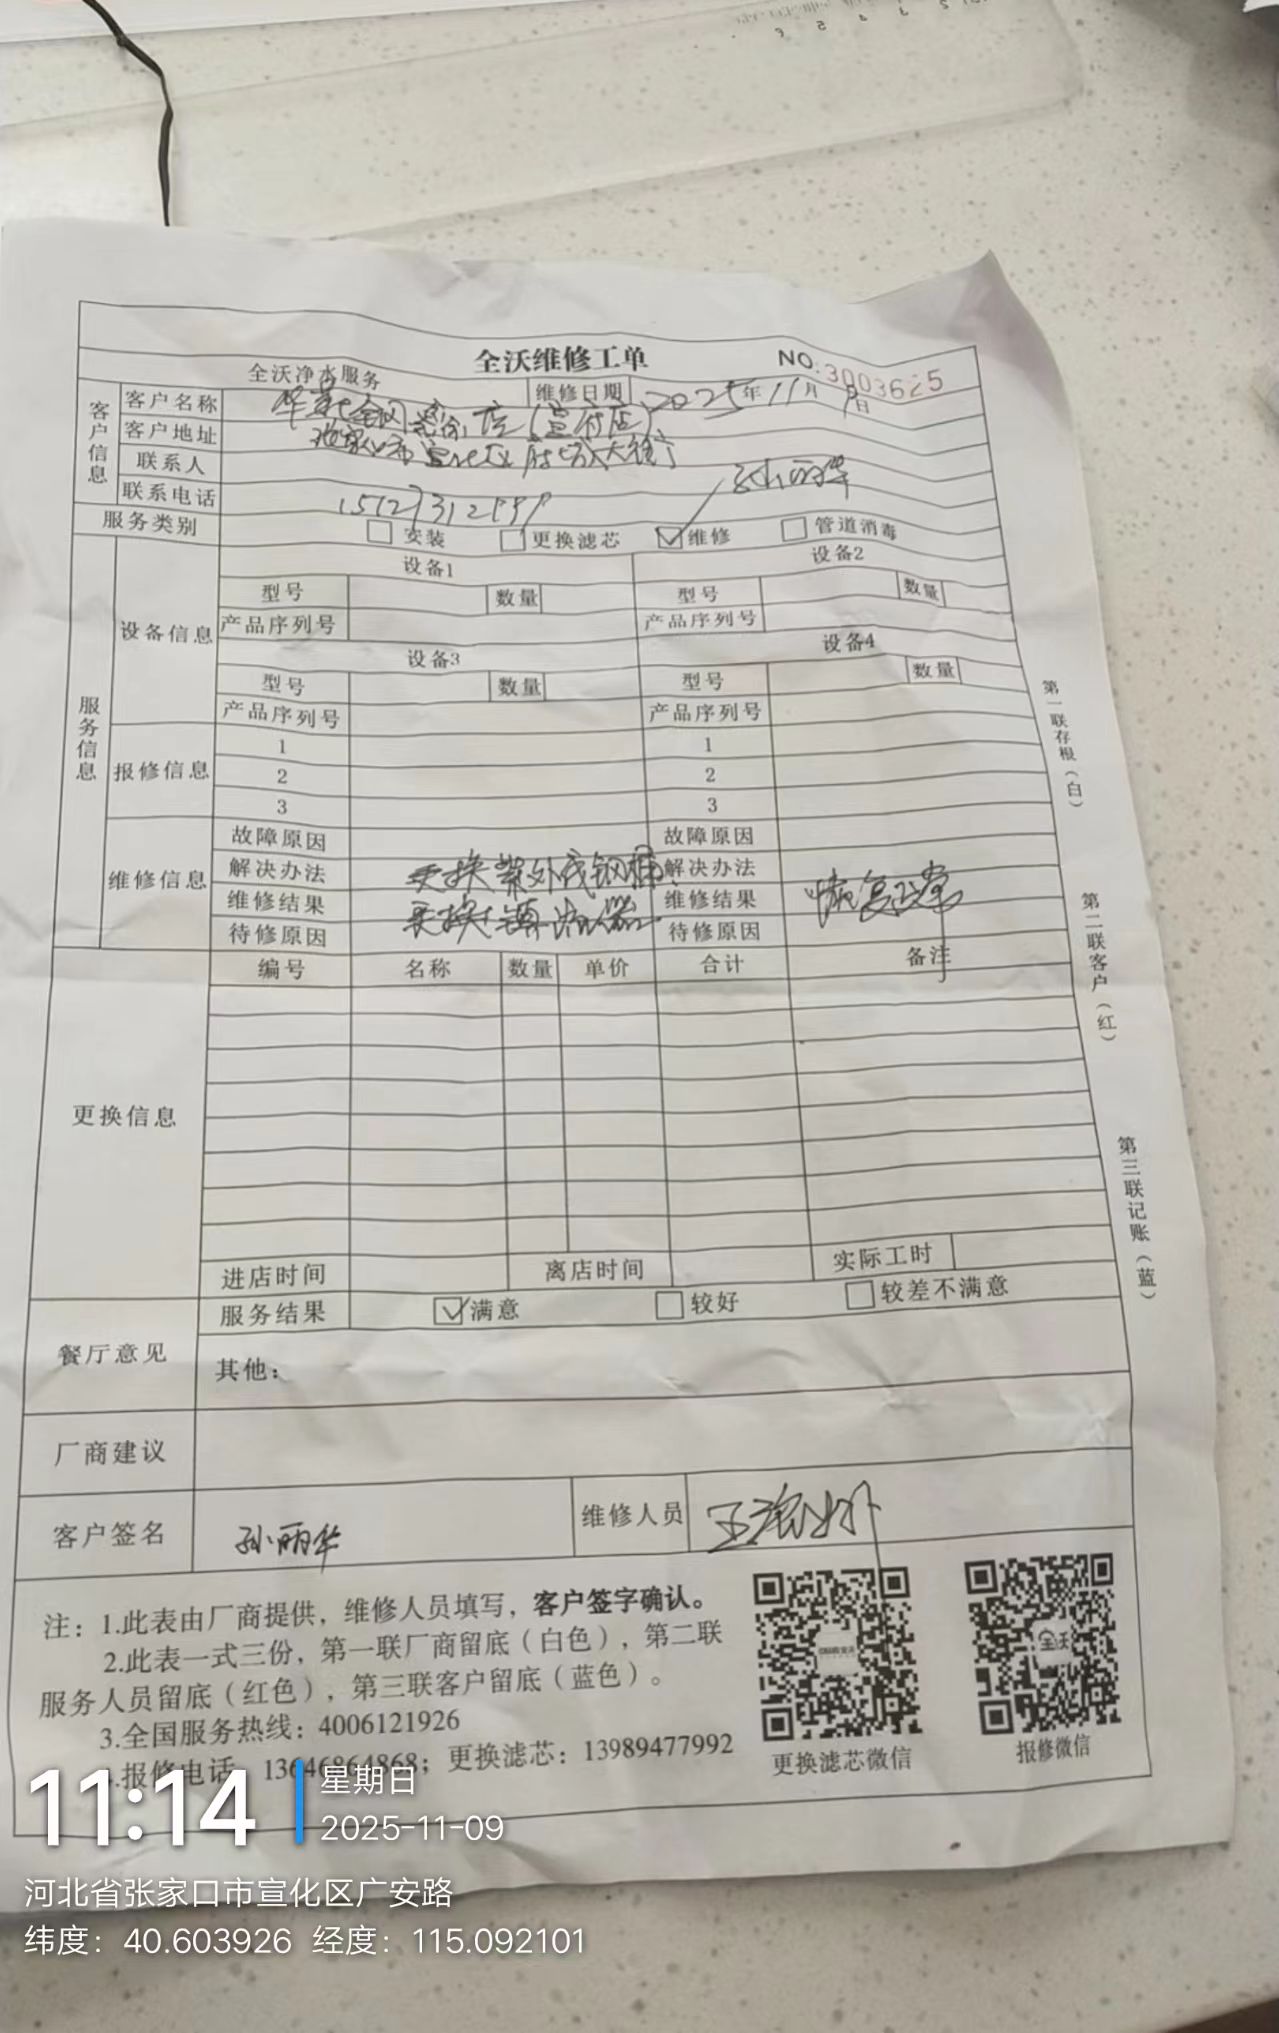 全沃维修工单
NO.3003625
全沃净水服务
维修日期 2025年11月9日
客户信息
客户名称 (宣府店)
客户地址
联系人 孙丽华
联系电话
服务类别 安装 更换滤芯 ☑维修 管道消毒
服务信息
设备信息
设备1 设备2
型号 数量 型号 数量
产品序列号 产品序列号
设备3 设备4
型号 数量 型号 数量
产品序列号 产品序列号
报修信息
1 1
2 2
3 3
维修信息
故障原因 故障原因
解决办法 更换紫外 解决办法
维修结果 更换 维修结果 恢复正常
待修原因 待修原因
更换信息
编号 名称 数量 单价 合计 备注
进店时间 离店时间 实际工时
餐厅意见
服务结果 ☑满意 较好 较差不满意
其他:
厂商建议
客户签名 孙丽华 维修人员
注:1.此表由厂商提供,维修人员填写,客户签字确认。
2.此表一式三份,第一联厂商留底(白色),第二联
服务人员留底(红色),第三联客户留底(蓝色)。
3.全国服务热线:4006121926
报修电话 13646864868;更换滤芯:13989477992
更换滤芯微信
全沃
报修微信
第一联存根(白)
第二联客户(红)
第三联记账(蓝)
11:14
星期日
2025-11-09
河北省张家口市宣化区广安路
纬度:40.603926 经度:115.092101